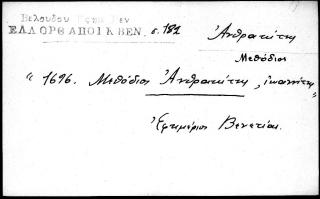 Βελουδου
ΕΛΛ ΟΡΘ ΑΠΟΙΚ ΒΕΝ. σ. 181
Ἀνθρακίτης
Μεθόδιος
" 1696. Μεθόδιος Ἀνθρακίτης,
Ἐφημέριος Βενετίας.